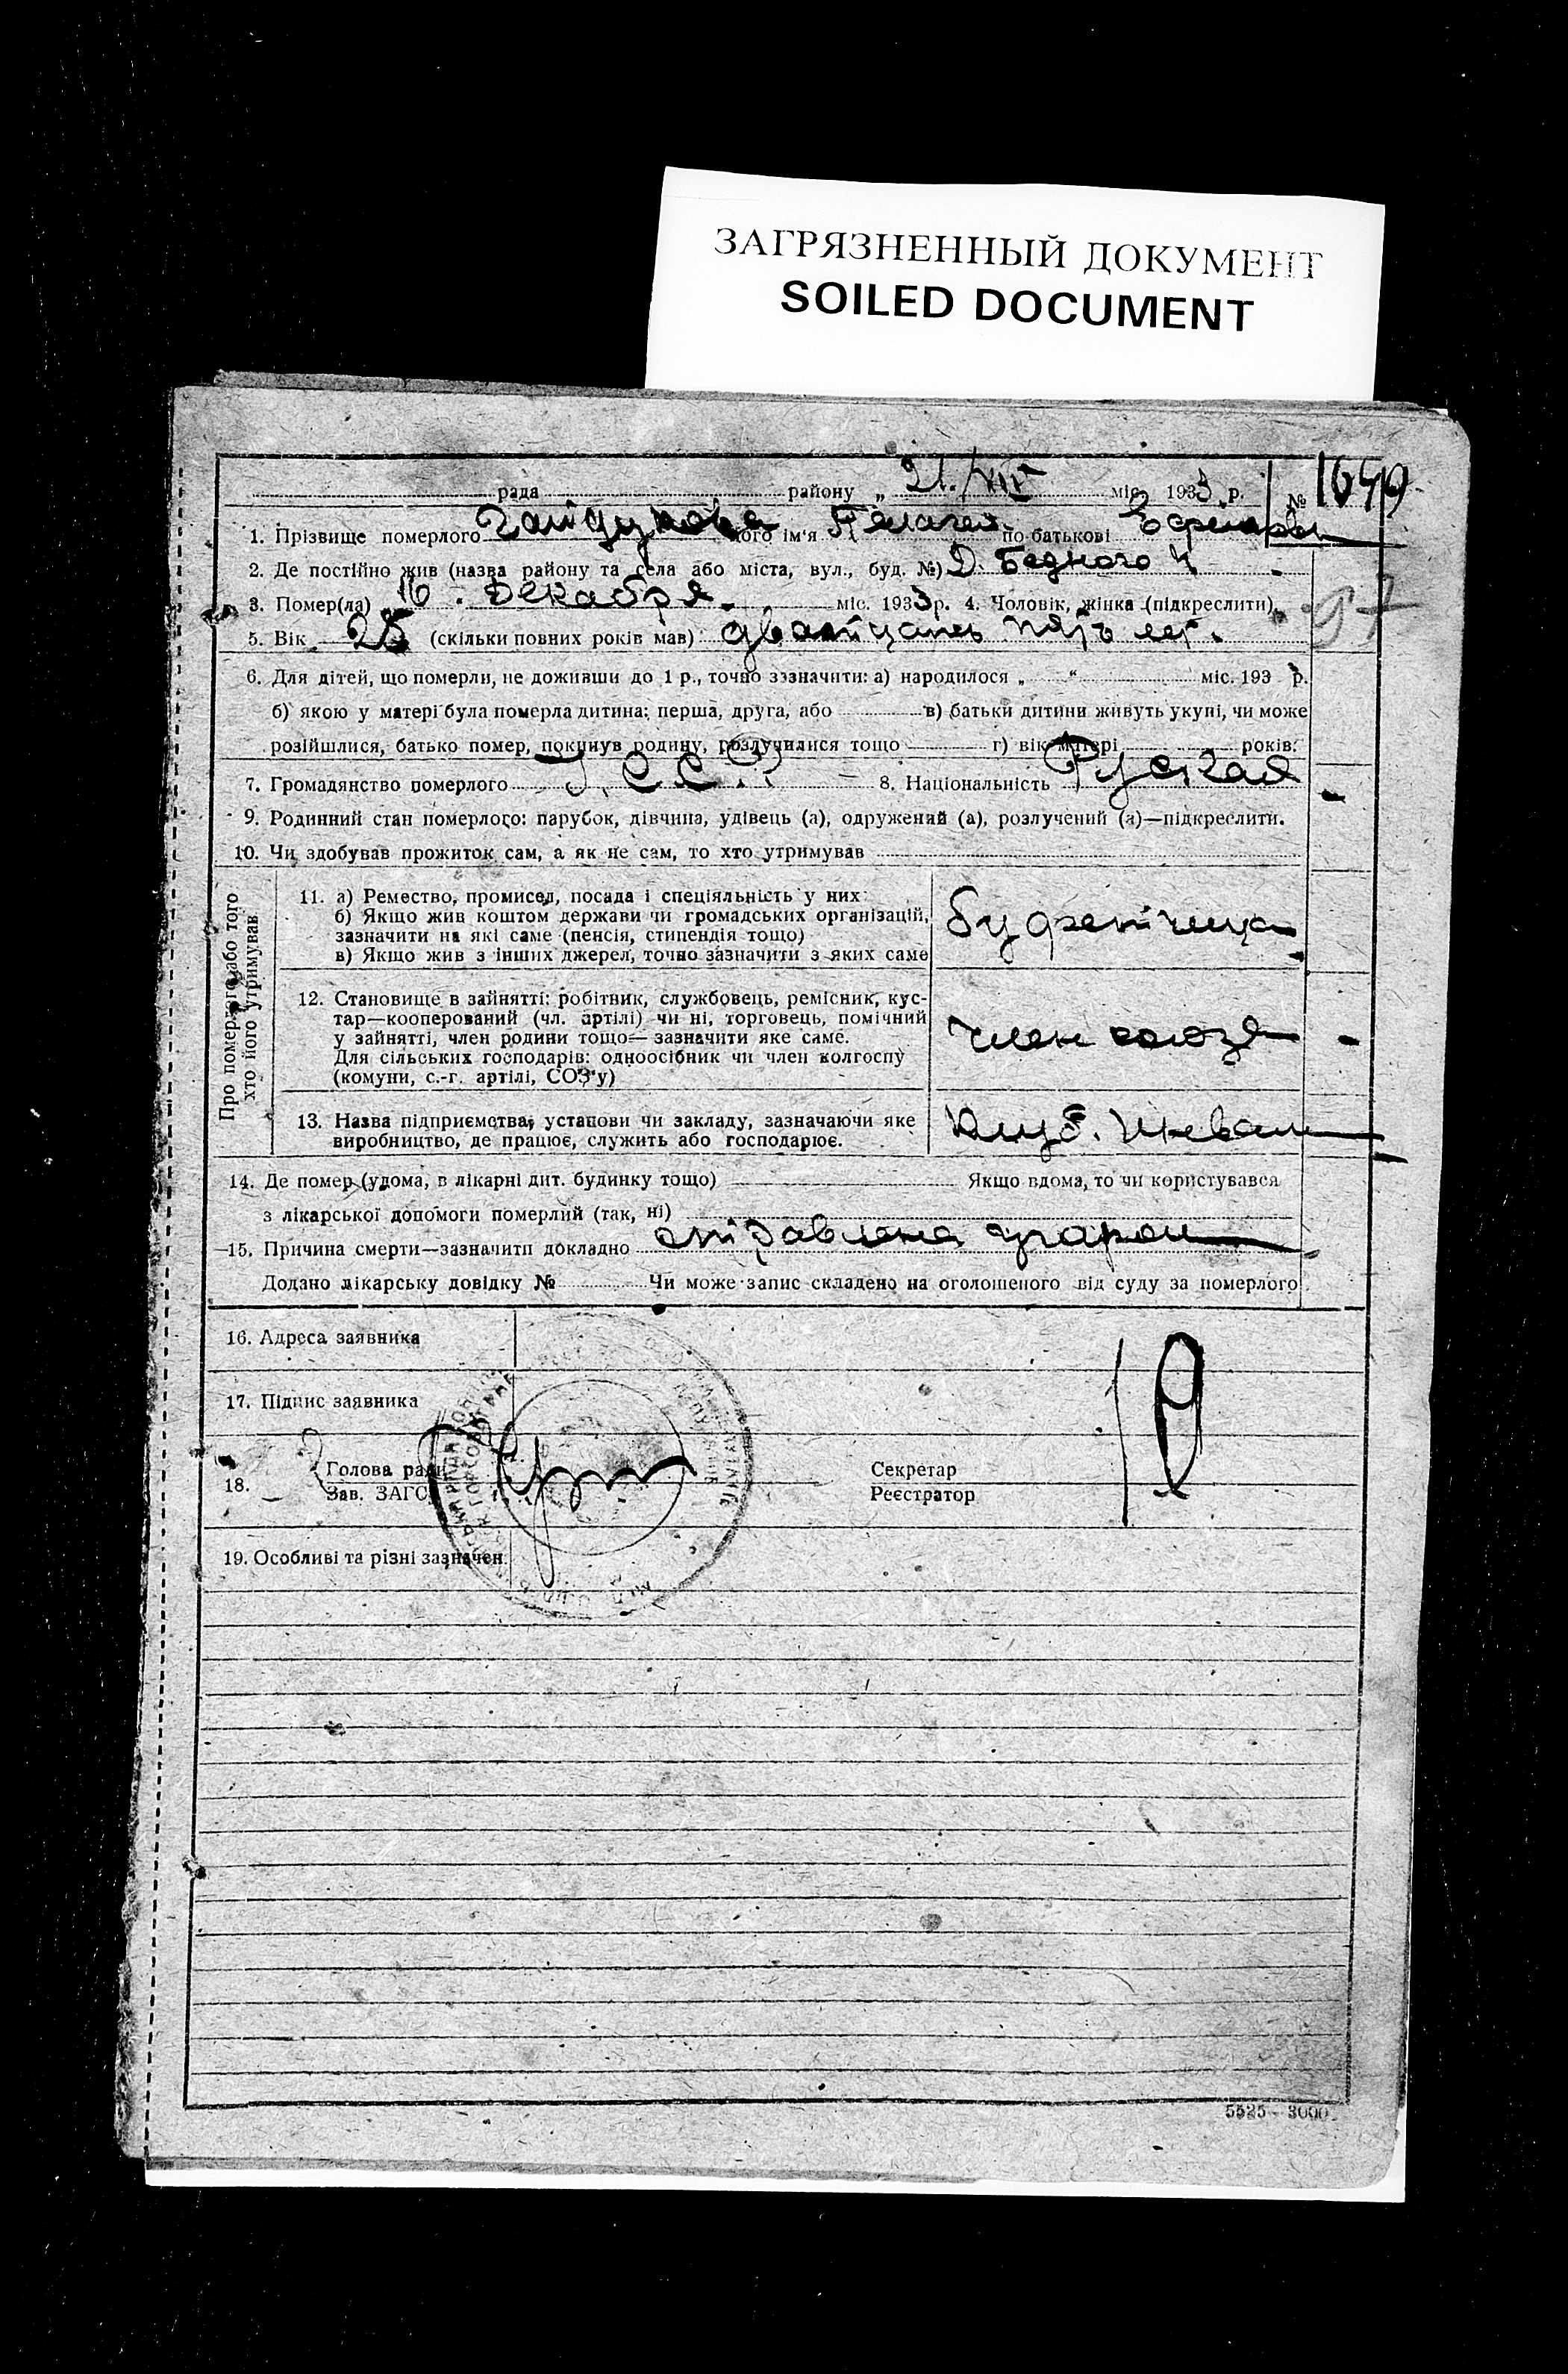 ЗАГРЯЗНЕННЫЙ ДОКУМЕНТ
SOILED DOCUMENT
рада району „ 21/XII міс. 1933 р. № 1649
1. Прізвище померлого Гайдукова його ім'я Пелагея по батькові
2. Де постійно жив (назва району та села або міста, вул., буд. №) Д. Бедного 4
3. Помер(ла) 16 Декабря міс. 1933 р. 4. Чоловік, жінка (підкреслити)
97
5. Вік 25 (скільки повних років мав) двайцать пять лет.
6. Для дітей, що померли, не доживши до 1 р., точно зазначити: а) народилося „ “ міс. 193 р.
б) якою у матері була померла дитина: перша, друга, або в) батьки дитини живуть укупі, чи може
розійшлися, батько помер, покинув родину, розлучилися тощо г) вік матері років.
7. Громадянство померлого У.С.С.Р. 8. Національність Руская
9. Родинний стан померлого: парубок, дівчина, удівець (а), одружений (а), розлучений (а)—підкреслити.
10. Чи здобував прожиток сам, а як не сам, то хто утримував
Про померлого або того
хто його утримував
11. а) Ремество, промисел, посада і спеціяльність у них
б) Якщо жив коштом держави чи громадських організацій,
зазначити на які саме (пенсія, стипендія тощо)
в) Якщо жив з інших джерел, точно зазначити з яких саме
буфетчица
12. Становище в зайнятті: робітник, службовець, ремісник, кус-
тар—кооперований (чл. артілі) чи ні, торговець, помічний
у зайнятті, член родини тощо—зазначити яке саме.
Для сільських господарів: одноосібник чи член колгоспу
(комуни, с.-г. артілі, СОЗ'у)
член союза
13. Назва підприємства, установи чи закладу, зазначаючи яке
виробництво, де працює, служить або господарює.
Клуб.
14. Де помер (удома, в лікарні дит. будинку тощо) Якщо вдома, то чи користувався
з лікарської допомоги померлий (так, ні)
15. Причина смерти—зазначити докладно отравлена угаром
Додано лікарську довідку № Чи може запис складено на оголошеного від суду за померлого
16. Адреса заявника
17. Підпис заявника
18. Голова ради
Зав. ЗАГС
Секретар
Реєстратор
19. Особливі та різні зазначен.
5525—3000